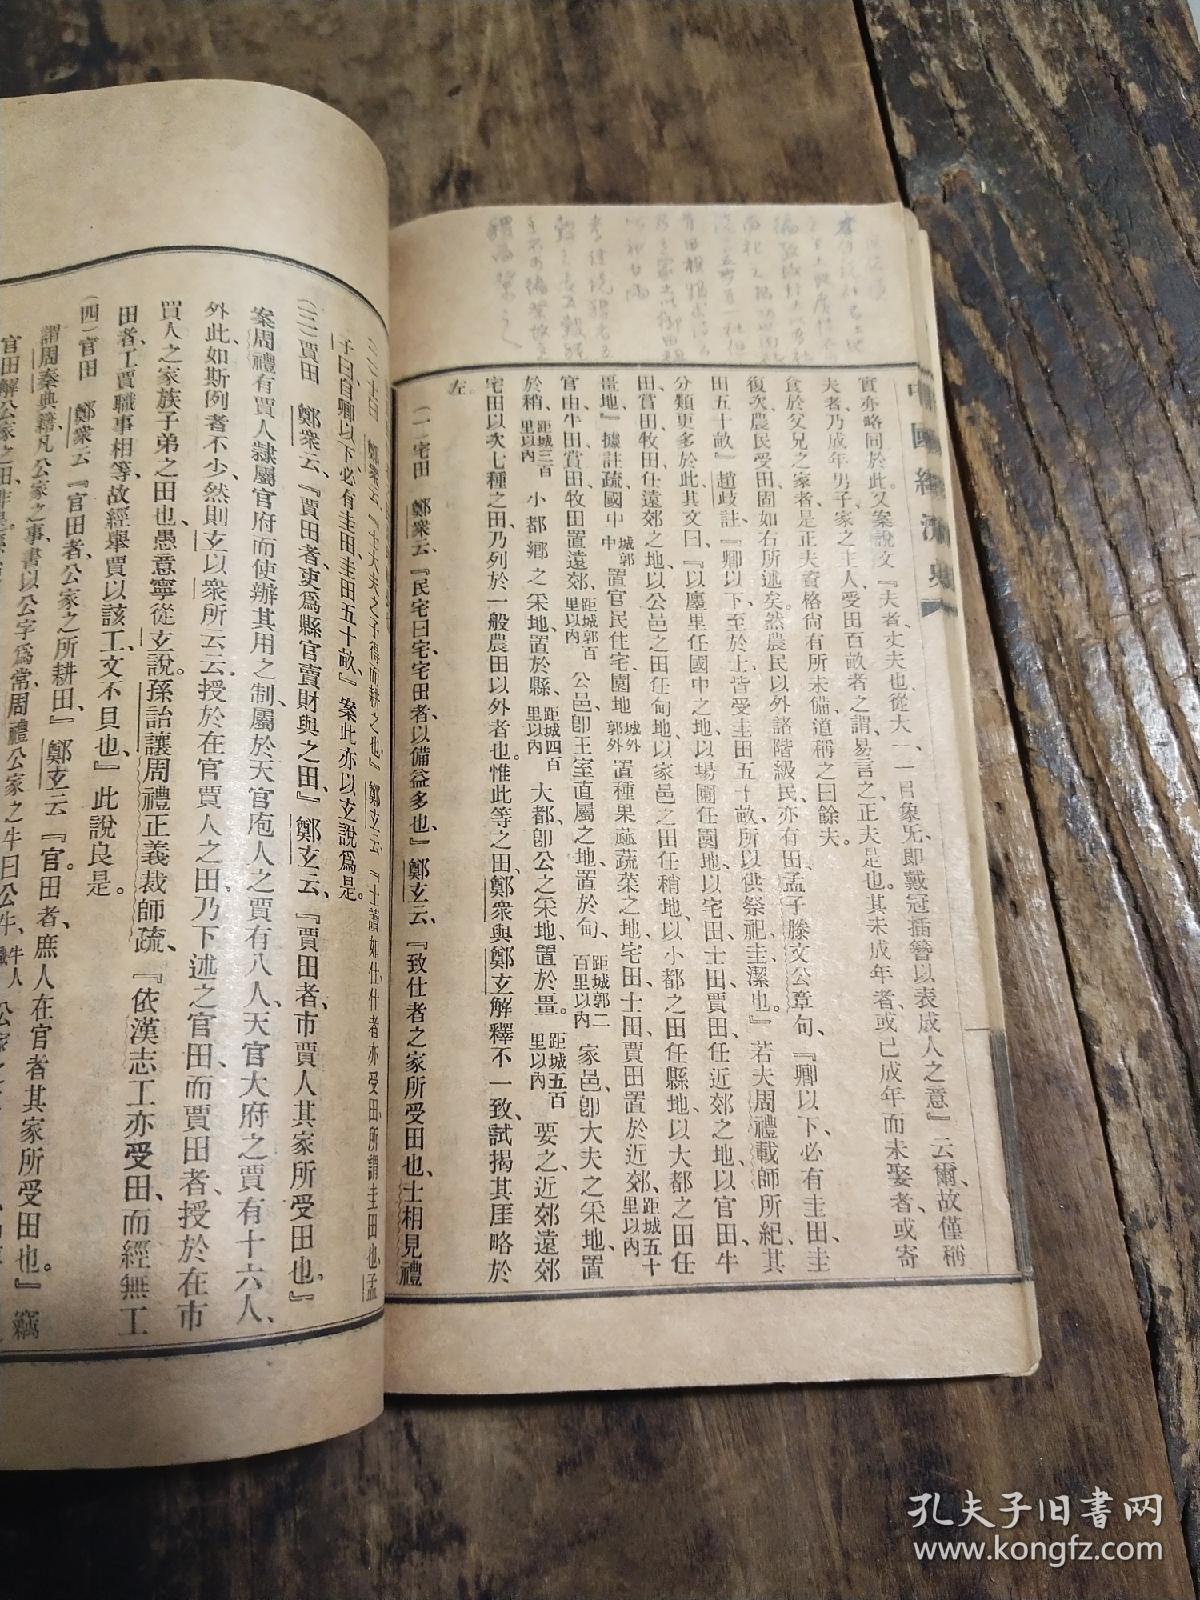 中國經濟史
實亦略同於此。又案說文『夫者丈夫也、從大一、一目象旡、即戴冠搢簪以表成人之意』云爾、故僅稱
夫者、乃成年男子、家之主人、受田百畝者之謂、易言之、正夫是也。其未成年者、或已成年而未娶者、或寄
食於父兄之家者、是正夫資格尙有所未備、遒稱之曰餘夫。
復次農民受田、固如右所述矣。然農民以外諸階級民亦有田、孟子滕文公章句、『卿以下必有圭田、圭
田五十畝』趙歧註、『卿以下、至於士、皆受圭田五十畝、所以供祭祀圭潔也。』若夫周禮載師所紀、其
分類更多於此、其文曰、『以廛里任國中之地、以場圃任園地、以宅田士田賈田、任近郊之地、以官田牛
田賞田牧田、任遠郊之地、以公邑之田任甸地、以家邑之田任稍地、以小都之田任縣地、以大都之田任
畺地』據註疏國中城郭中置官民住宅、園地城外郭外置種果蓏蔬菜之地、宅田士田賈田置於近郊、距城五十里以內
官田牛田賞田牧田置遠郊、距城郭百里以內公邑卽王室直屬之地、置於甸、距城郭二百里以內家邑卽大夫之采地、置
於稍、距城三百里以內小都鄉之采地置於縣、距城四百里以內大都卽公之采地置於畺。距城五百里以內要之近郊遠郊
宅田以次七種之田、乃列於一般農田以外者也。惟此等之田、鄭衆與鄭玄解釋不一致、試揭其厓略於
左。
(一)宅田 鄭衆云、『民宅曰宅、宅田者以備益多也、』鄭玄云、『致仕者之家所受田也、士相見禮
(二)士田 鄭衆云、『士大夫之子得而耕之田也』鄭玄云、『士讀如仕、仕者亦受田、所謂圭田也、孟
子曰、自卿以下必有圭田、圭田五十畝、』案此亦以玄說爲是。
(三)賈田 鄭衆云、『賈田者、吏爲縣官賣財與之田、』鄭玄云、『賈田者、市賈人其家所受田也。』
案周禮有賈人、隸屬官府而使辦其用之制、屬於天官庖人之賈有八人、天官大府之賈有十六人、
外此如斯例者不少、然則玄以衆所云云、授於在官賈人之田、乃下述之官田、而賈田者、授於在市
買人之家族子弟之田也、愚意寧從玄說。孫詒讓周禮正義裁師疏、『依漢志工亦受田、而經無工
田者、工賈職事相等、故經舉賈以該工、文不具也、』此說良是。
(四)官田 鄭衆云『官田者、公家之所耕田、』鄭玄云『官田者、庶人在官者其家所受田也。』竊
謂周秦典籍、凡公家之事、書以公字爲常、周禮公家之牛曰公牛、牛人
官田解公家之田非是
孔夫子旧书网
www.kongfz.com